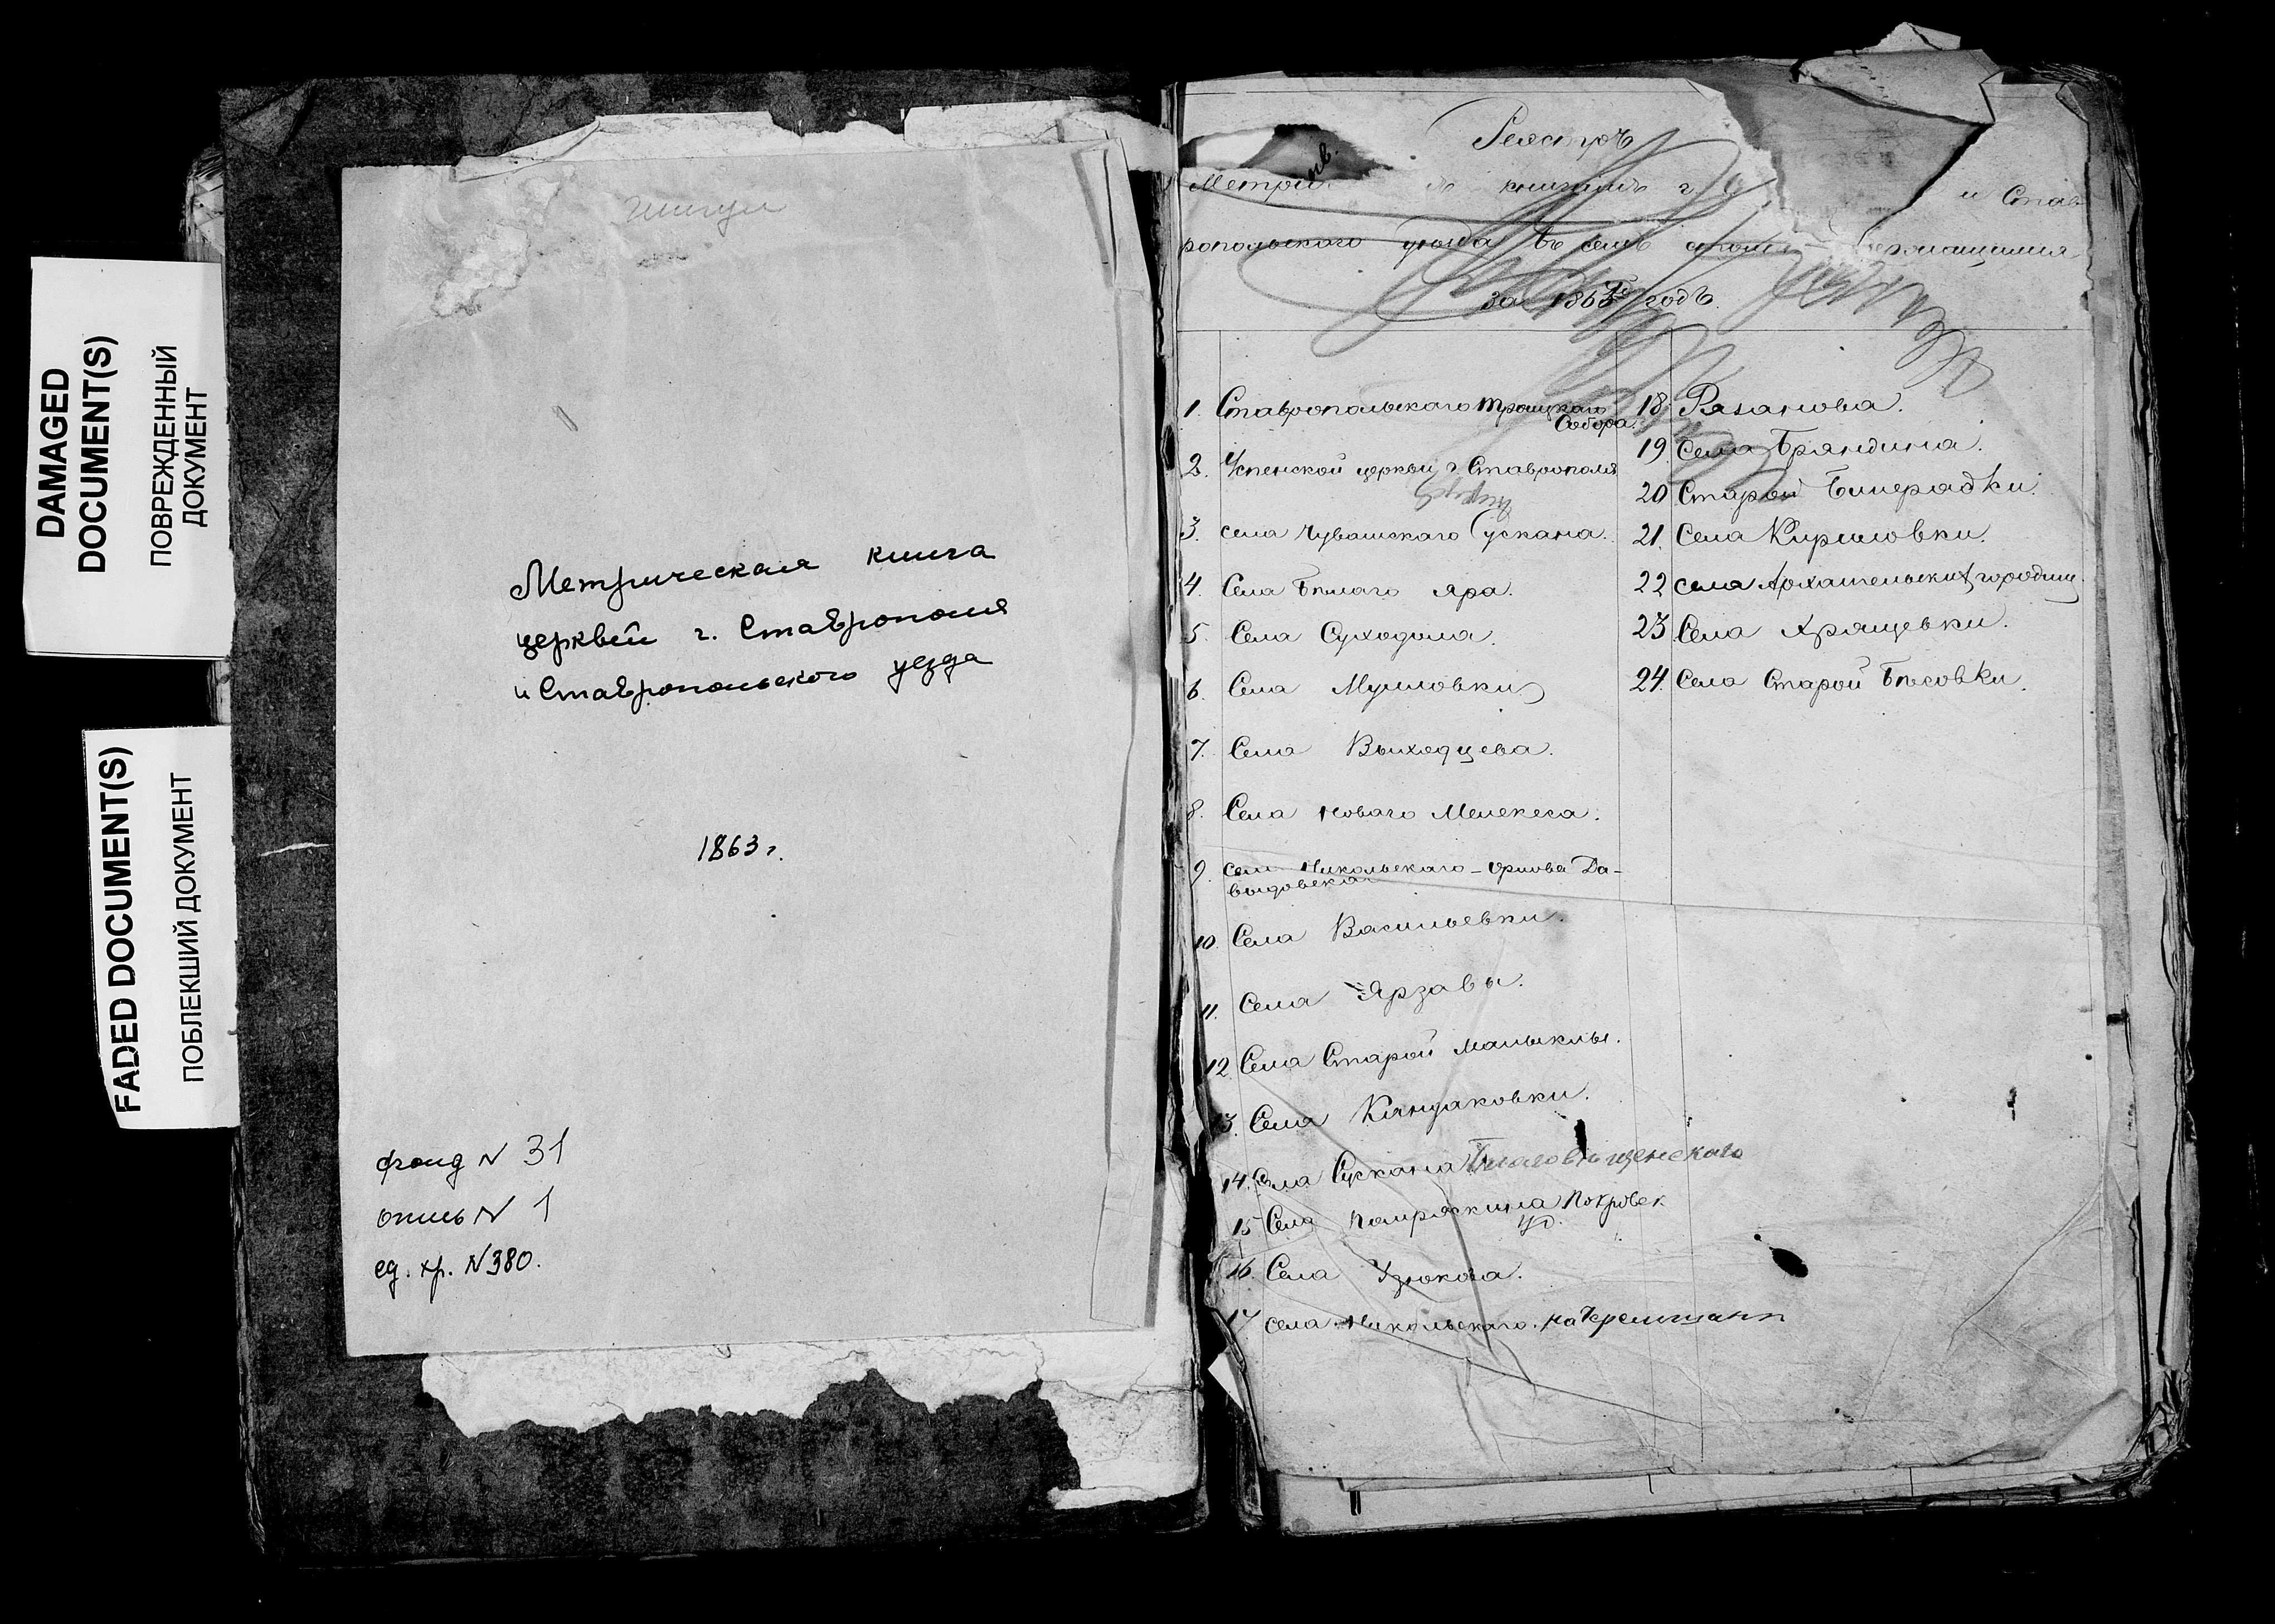 DAMAGED
DOCUMENT(S)
ПОВРЕЖДЕННЫЙ
ДОКУМЕНТ
FADED DOCUMENT(S)
ПОБЛЕКШИЙ ДОКУМЕНТ
Метрическая книга
церквей г. Ставрополя
и Ставропольского уезда
1863 г.
фонд N 31
опись N 1
ед. хр. N 380.
Реестръ
книгамъ г. и Став
ропольскаго уѣзда въ семъ
за 1863 годъ.
1. Ставропольскаго Троицкаго
Собора.
2. Успенской церкви г. Ставрополя
3. села Чувашскаго Сускана.
4. Села Бѣлаго Яра.
5. Села Суходола.
6. Села Мулловки
7. Села Выходцева.
8. Села Новаго Мелекеса.
9. села Никольскаго - Орлова Да-
выдовска
10. Села Васильевки.
11. Села Ярзавы.
12. Села Старой Малыклы.
13. Села Кандаковки.
14. Села Сускана Благовѣщенскаго
15. Села Помряскина Покровск
ц.
16. Села Узюкова.
17 села Никольскаго на Черемшанѣ
18. Рязанова.
19. Села Бряндина.
20 Старой Бинерадки.
21. Села Кирилловки.
22 села Архангельских городищ.
23 Села Хрящевки.
24. Села Старой Бѣсовки.